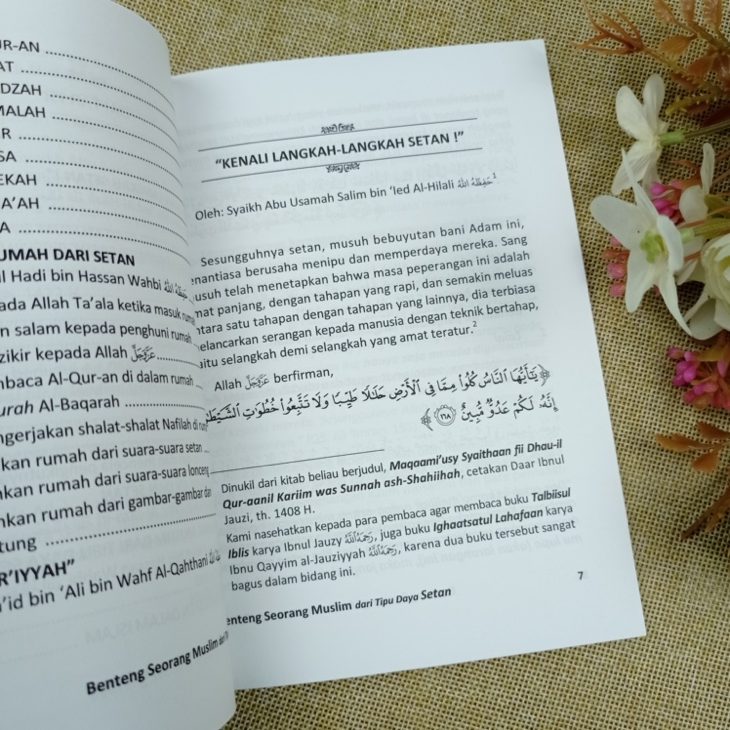 UR-AN
AT
DZAH
MALAH
R
SA
EKAH
A'AH
A
UMAH DARI SETAN
l Hadi bin Hassan Wahbi حفظه الله
ada Allah Ta'ala ketika masuk ruma
n salam kepada penghuni rumah
zikir kepada Allah عز وجل
mbaca Al-Qur-an di dalam rumah
urah Al-Baqarah
ngerjakan shalat-shalat Nafilah di rum
kan rumah dari suara-suara setan
nkan rumah dari suara-suara lonceng
hkan rumah dari gambar-gambar dan
tung
R'IYYAH"
a'id bin 'Ali bin Wahf Al-Qahthani
Benteng Seorang Muslim
"KENALI LANGKAH-LANGKAH SETAN !"
Oleh: Syaikh Abu Usamah Salim bin 'Ied Al-Hilali حفظه الله 1
Sesungguhnya setan, musuh bebuyutan bani Adam ini,
enantiasa berusaha menipu dan memperdaya mereka. Sang
usuh telah menetapkan bahwa masa peperangan ini adalah
mat panjang, dengan tahapan yang rapi, dan semakin meluas
ntara satu tahapan dengan tahapan yang lainnya, dia terbiasa
elancarkan serangan kepada manusia dengan teknik bertahap,
aitu selangkah demi selangkah yang amat teratur.2
Allah عز وجل berfirman,
﴿ يَٰٓأَيُّهَا ٱلنَّاسُ كُلُوا۟ مِمَّا فِى ٱلْأَرْضِ حَلَٰلًا طَيِّبًا وَلَا تَتَّبِعُوا۟ خُطُوَٰتِ ٱلشَّيْطَٰنِ
إِنَّهُۥ لَكُمْ عَدُوٌّ مُّبِينٌ ١٦٨ ﴾
Dinukil dari kitab beliau berjudul, Maqaami'usy Syaithaan fii Dhau-il
Qur-aanil Kariim was Sunnah ash-Shahiihah, cetakan Daar Ibnul
Jauzi, th. 1408 H.
Kami nasehatkan kepada para pembaca agar membaca buku Talbiisul
Iblis karya Ibnul Jauzy رحمه الله, juga buku Ighaatsatul Lahafaan karya
Ibnu Qayyim al-Jauziyyah رحمه الله, karena dua buku tersebut sangat
bagus dalam bidang ini.
7
enteng Seorang Muslim dari Tipu Daya Setan